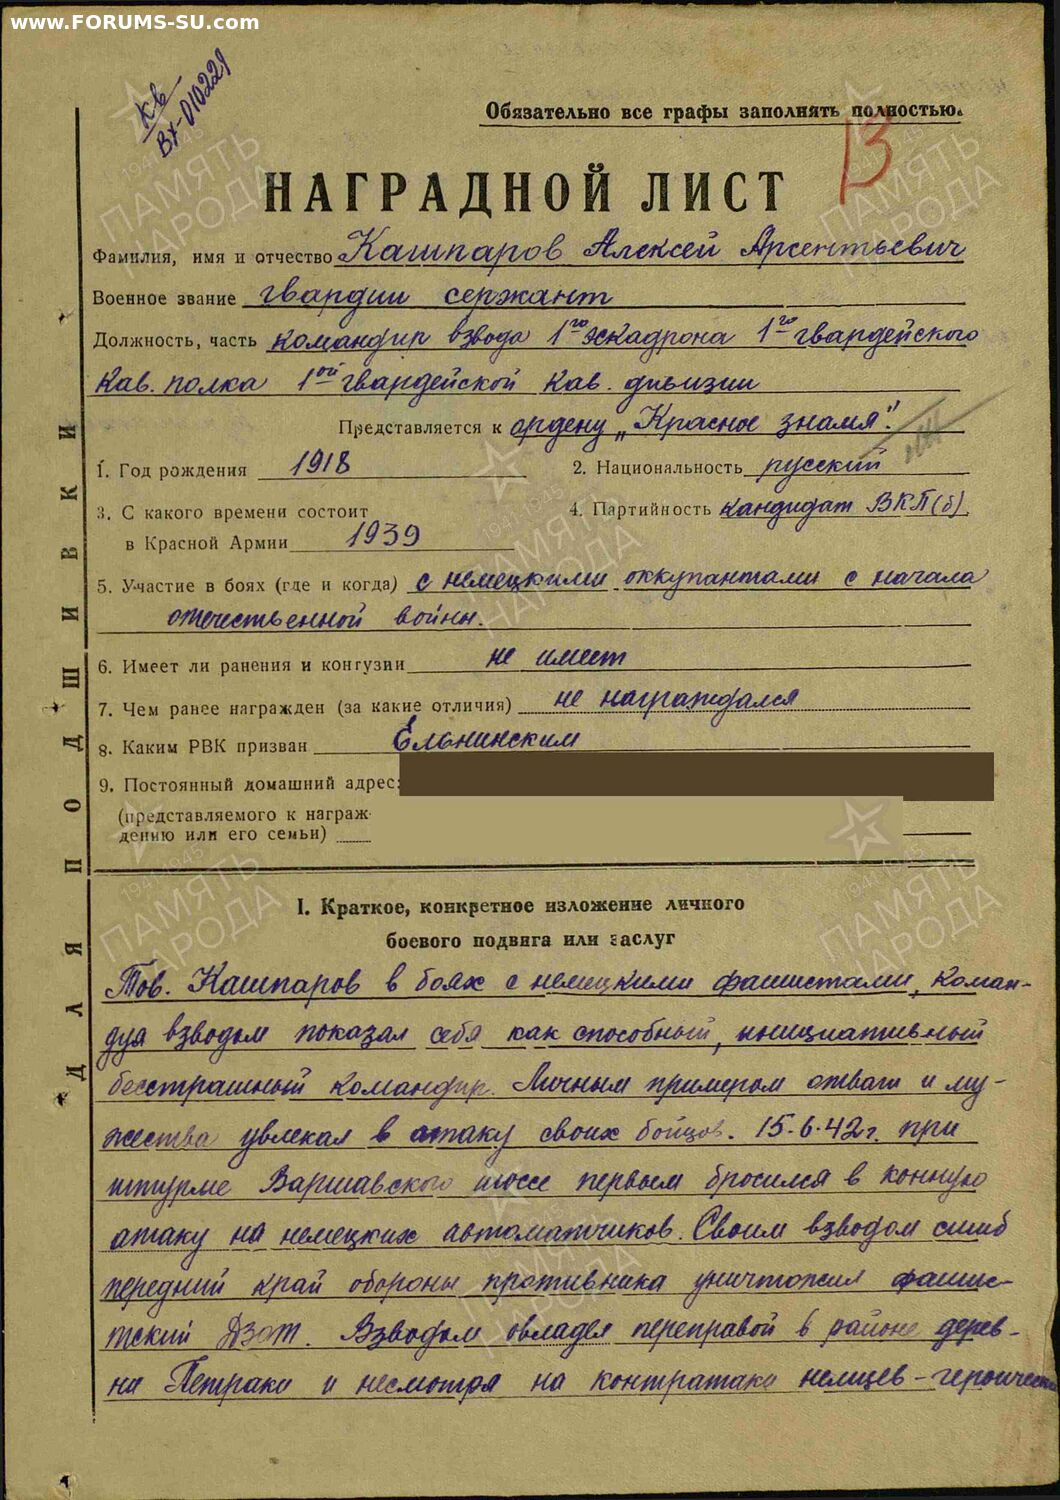 www.FORUMS-SU.com
Кв
Вх-010221
Обязательно все графы заполнять полностью.
13
НАГРАДНОЙ ЛИСТ
Фамилия, имя и отчество Кашпаров Алексей Арсентьевич
Военное звание гвардии сержант
Должность, часть командир взвода 1го эскадрона 1го гвардейского
Кав. полка 1ой гвардейской Кав. дивизии
Представляется к ордену „Красное знамя".
1. Год рождения 1918 2. Национальность русский
3. С какого времени состоит 4. Партийность кандидат ВКП(б)
в Красной Армии 1939
5. Участие в боях (где и когда) с немецкими оккупантами с начала
отечественной войны.
6. Имеет ли ранения и контузии не имеет
7. Чем ранее награжден (за какие отличия) не награждался
8. Каким РВК призван Ельнинским
9. Постоянный домашний адрес:
(представляемого к награж-
дению или его семьи)
I. Краткое, конкретное изложение личного
боевого подвига или заслуг
Тов. Кашпаров в боях с немецкими фашистами, коман-
дуя взводом показал себя как способный, инициативный
бесстрашный командир. Личным примером отваги и му-
жества увлекал в атаку своих бойцов. 15.6.42г. при
штурме Варшавского шоссе первым бросился в конную
атаку на немецких автоматчиков. Своим взводом сшиб
передний край обороны противника уничтожил фашис-
тский ДЗОТ. Взводом овладел переправой в районе дерев-
ни Петраки и несмотря на контратаки немцев - героически
ДЛЯ ПОДШИВКИ
ПАМЯТЬ НАРОДА
1941-1945